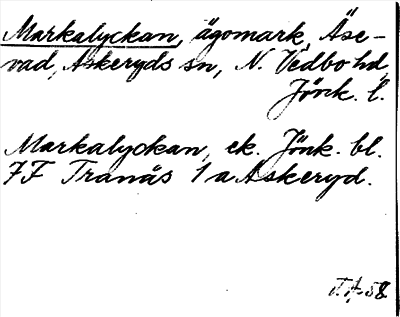 Markalyckan, ägomark, Äse-
vad, Askeryds sn, N. Vedbo hd,
Jönk. l.
Markalyckan, ek. Jönk. bl.
7F Tranås 1 a Askeryd.
58